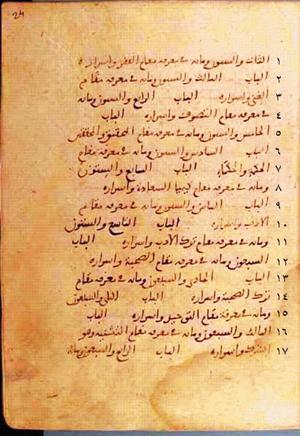 24
١ الثاني والستون ومائة في معرفة مقام الفقر واسراره
٢ الباب الثالث والستون ومائة في معرفة مقام
٣ الغنى واسراره الباب الرابع والستون ومائة
٤ في معرفة مقام التصوف واسراره الباب
٥ الخامس والستون ومائة في معرفة مقام التحقيق والمحققين
٦ الباب السادس والستون ومائة في معرفة مقام
٧ الحكمة والحكماء الباب السابع والستون
٨ ومائة في معرفة مقام كيمياء السعادة واسراره
٩ الباب الثامن والستون ومائة في معرفة مقام
١٠ الادب واسراره الباب التاسع والستون
١١ ومائة في معرفة مقام ترك الادب واسراره الباب
١٢ السبعون ومائة في معرفة مقام الصحبة واسراره
١٣ الباب الحادي والسبعون ومائة في معرفة مقام
١٤ ترك الصحبة واسراره الباب الثاني والسبعون
١٥ ومائة في معرفة مقام التوحيد واسراره الباب
١٦ الثالث والسبعون ومائة في معرفة مقام التثنية وهو
١٧ الشرك واسراره الباب الرابع والسبعون ومائة